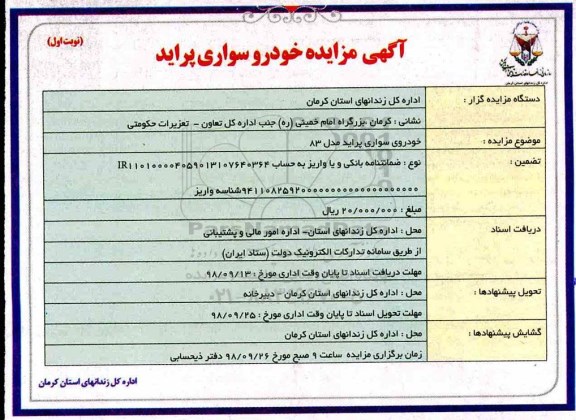 (نوبت اول)
آگهی مزایده خودرو سواری پراید
اداره کل زندانهای استان کرمان
دستگاه مزایده گزار : اداره کل زندانهای استان کرمان
نشانی : کرمان ،بزرگراه امام خمینی (ره) جنب اداره کل تعاون – تعزیرات حکومتی
موضوع مزایده : خودروی سواری پراید مدل ۸۳
تضمین : نوع : ضمانتنامه بانکی و یا واریز به حساب IR۱۱۰۱۰۰۰۰۴۰۵۹۰۱۳۱۰۷۶۴۰۳۶۴
شناسه واریز
مبلغ : ۲۰/۰۰۰/۰۰۰ ریال
دریافت اسناد محل : اداره کل زندانهای استان– اداره امور مالی و پشتیبانی
از طریق سامانه تدارکات الکترونیک دولت (ستاد ایران)
مهلت دریافت اسناد تا پایان وقت اداری مورخ : ۹۸/۰۹/۱۳
تحویل پیشنهادها : محل : اداره کل زندانهای استان کرمان – دبیرخانه
مهلت تحویل اسناد تا پایان وقت اداری مورخ : ۹۸/۰۹/۲۵
گشایش پیشنهادها : محل : اداره کل زندانهای استان کرمان
زمان برگزاری مزایده ساعت ۹ صبح مورخ ۹۸/۰۹/۲۶ دفتر ذیحسابی
اداره کل زندانهای استان کرمان